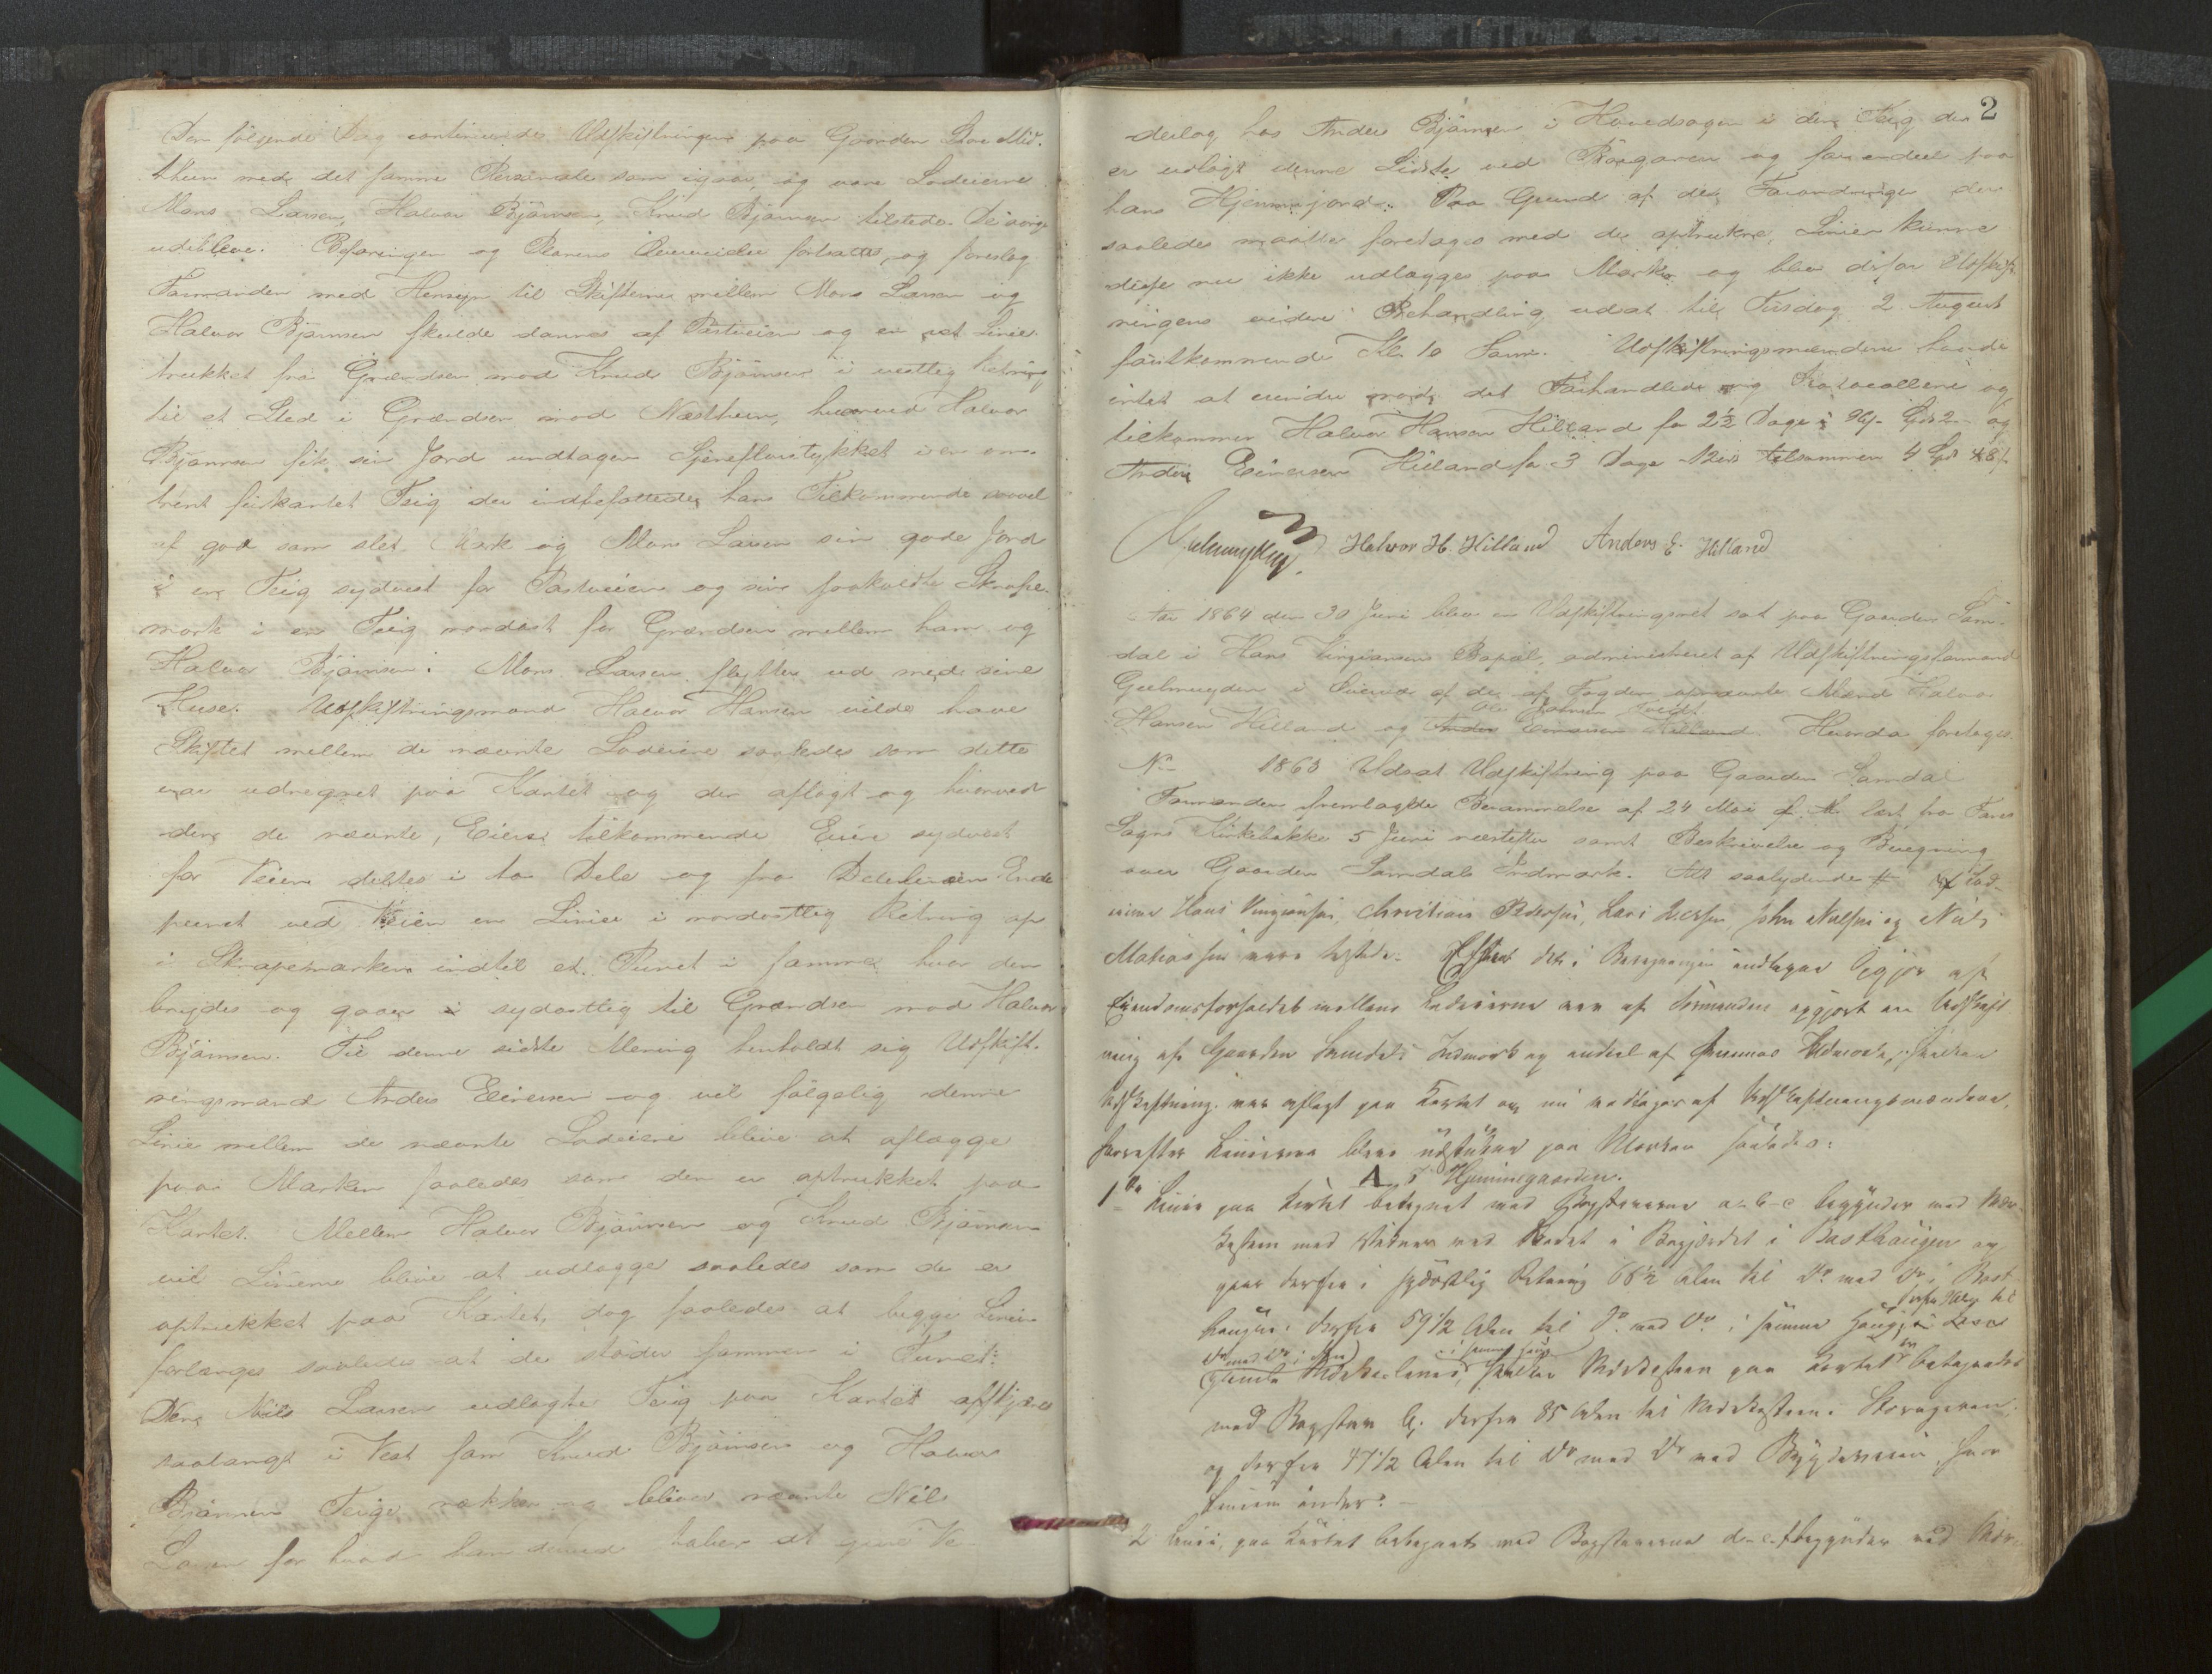 Den følgende Dag continueredes Udskiftningen paa Gaarden Store Mid-
theim med det samme Personale som igaar, og vare Lodeierne
Mons Larsen, Halvor Bjørnsen, Knud Bjørnsen tilstede. De øvrige
udebleve. Befaringen og Planens fortsattes, og foreslog
Formanden med Hensyn til Skifterne mellem Mons Larsen og
Halvor Bjørnsen skulde dannes af Postveien og en ret Linie
trukket fra Grændsen mod Knud Bjørnsen i vestlig Retning
til et Sted i Grændsen mod Næstheim, hvorved Halvor
Bjørnsen fik sin Jord undtagen i en om-
trent firkantet Teig der indbefattede hans Tilkommende saavel
af god som slet Mark og Mons Larsen sin gode Jord
i en Teig sydvest for Postveien og sin Skrape-
mark i en Teig nordost for Grændsen mellem ham og
Halvor Bjørnsen. Mons Larsen flytter ud med sine
Huse. Udskiftningsmand Halvor Hansen vilde have
Skiftet mellem de nævnte Lodeiere saaledes som dette
var udregnet paa Kartet og der aflagt og hvorved
den de nævnte Eiere tilkommende Eien sydvest
for Veien deltes i to Dele og fra Delelinien Ende
punct ved Veien en Linie i nordostlig Retning op
i Skrapemarken indtil et Punct i samme, hvor den
brydes og gaaer i sydostlig til Grændsen mod Halvor
Bjørnsen. Til denne sidste Mening henholdt sig Udskift-
ningsmand Anders Einersen og vil følgelig denne
Linie mellem de nævnte Lodeiere blive at aflægge
paa Marken saaledes som den er optrukket paa
Kartet. Mellem Halvor Bjørnsen og Knud Bjørnsen
vil Linierne blive at udlægge saaledes som de er
optrukket paa Kartet, dog saaledes at begge Linier
forlænges saaledes at de støder sammen i Tunet.
Den Nils Larsen udlagte Teig paa Kartet afskjæres
saalangt i Vest som Knud Bjørnsen og Halvor
Bjørnsen Teige rækker og bliver nævnte Nils
Larsen for hvad han derved taber at give Ve-
2
derlag hos Anders Bjørnsen i Hovedsagen i den Teig der
er udlagt denne Sidste ved Børgaren og for endeel paa
hans Hjemmejord. Paa Grund af de Forandringer der
saaledes maatte foretages med de optrukne Linier kunne
disse nu ikke udlægges paa Marken og blev derfor Udskift-
ningens videre Behandling udsat til Tirsdag 2 August
førstkommende Kl. 10 Form. Udskiftningsmændene havde
intet at erindre mod det Forhandlede og Protocollerne og
tilkommer Halvor Hansen Hilland for 2½ Dage og
Anders Einersen Hilland for 3 Dage tilsammen 4 Spd 48 s
Geelmuyden. Halvor H. Hilland Anders E. Hilland
Aar 1864 den 30 Juni blev en Udskiftningsret sat paa Gaarden Sam-
dal i Hans Bopæl, administreret af Udskiftningsformand
Geelmuyden i Overvær af de af Fogden opnævnte Mænd Halvor
Hansen Hilland og Anders Einersen Hilland. Hvorda foretages
No 1863 Udsat Udskiftning paa Gaarden Samdal
Formanden fremlagde Berammelse af 24 Mai læst fra Fane
Sogns Kirkebakke 5 Juni næstefter samt Beskrivelse og Beregning
over Gaarden Samdals Indmark. Alt saalydende # Af Lod-
eierne Hans, Christian Pedersen, Lars Iversen, John Nielsen og Niels
Mathiassen vare tilstede. Efter det i Beregningen indtagne Opgjør af
Eiendomsforholdet mellem Lodeierne var af Formanden opgjort en Udskift
ning af Gaarden Samdals Indmark og endeel af sammes Udmark, hvilken
Udskiftning var aflagt paa Kartet og nu vedtages af Udskiftningsmændene,
hvorefter Linierne bleve udstukne paa Marken saaledes:
A, I Hjemmegaarden.
1ste Linie paa Kartet betegnet med Bogstaverne a-b-c begynder med Mær-
kesten med Vidner ved Rodet i Bøgjerdet i Basthaugen og
gaar derfra i sydøstlig Retning 68½ Alen til Do med Do i Bast
haugen: derfra 59½ Alen til Do. med Do. i samme Haug
i samme Haug
hvilken Mærkesten paa Kartet er betegnet
med Bogstav b; derfra 85 Alen til Mærkesten i Storageren,
og derfra 47½ Alen til Do med Do ved Bygdeveien, hvor
Linien ender.
2 Linie, paa Kartet betegnet med Bogstaverne d-e-f begynder ved Mær-